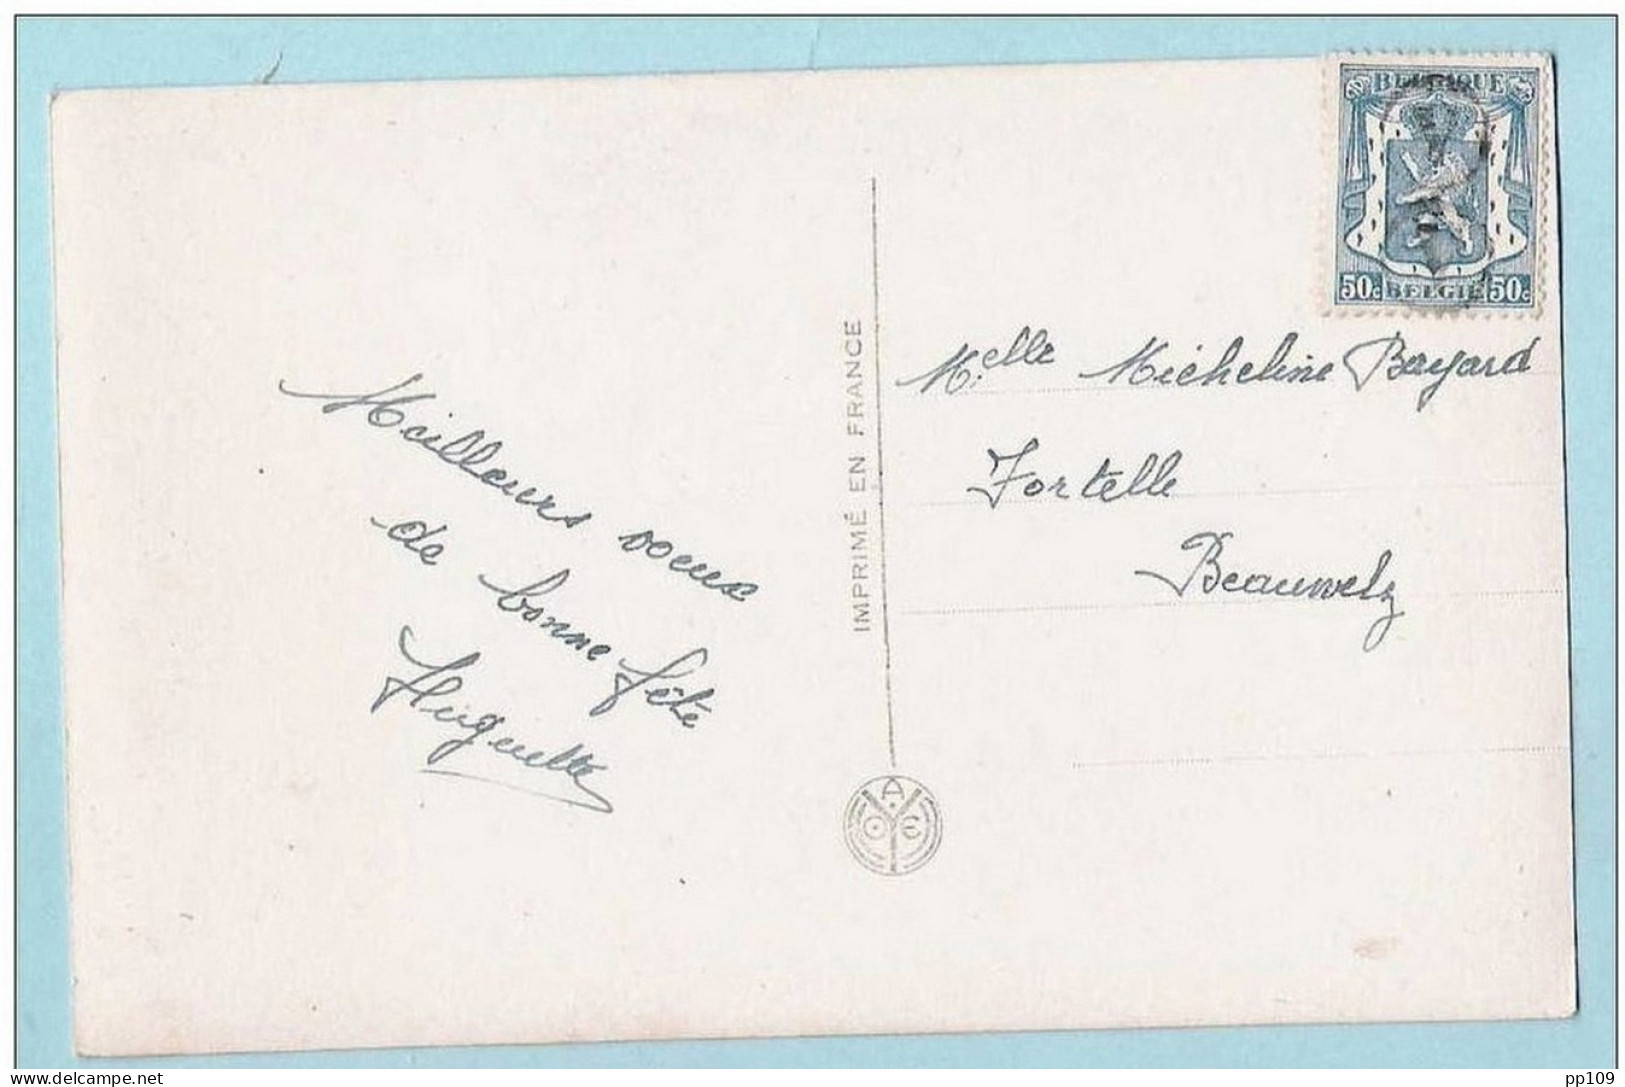 BELGIQUE
50c BELGIË 50c
Meilleurs voeux
de bonne fête
Huguette
IMPRIMÉ EN FRANCE
A
O E
Melle Micheline Bayard
Fortelle
Beauwelz
delcampe.net
pp109